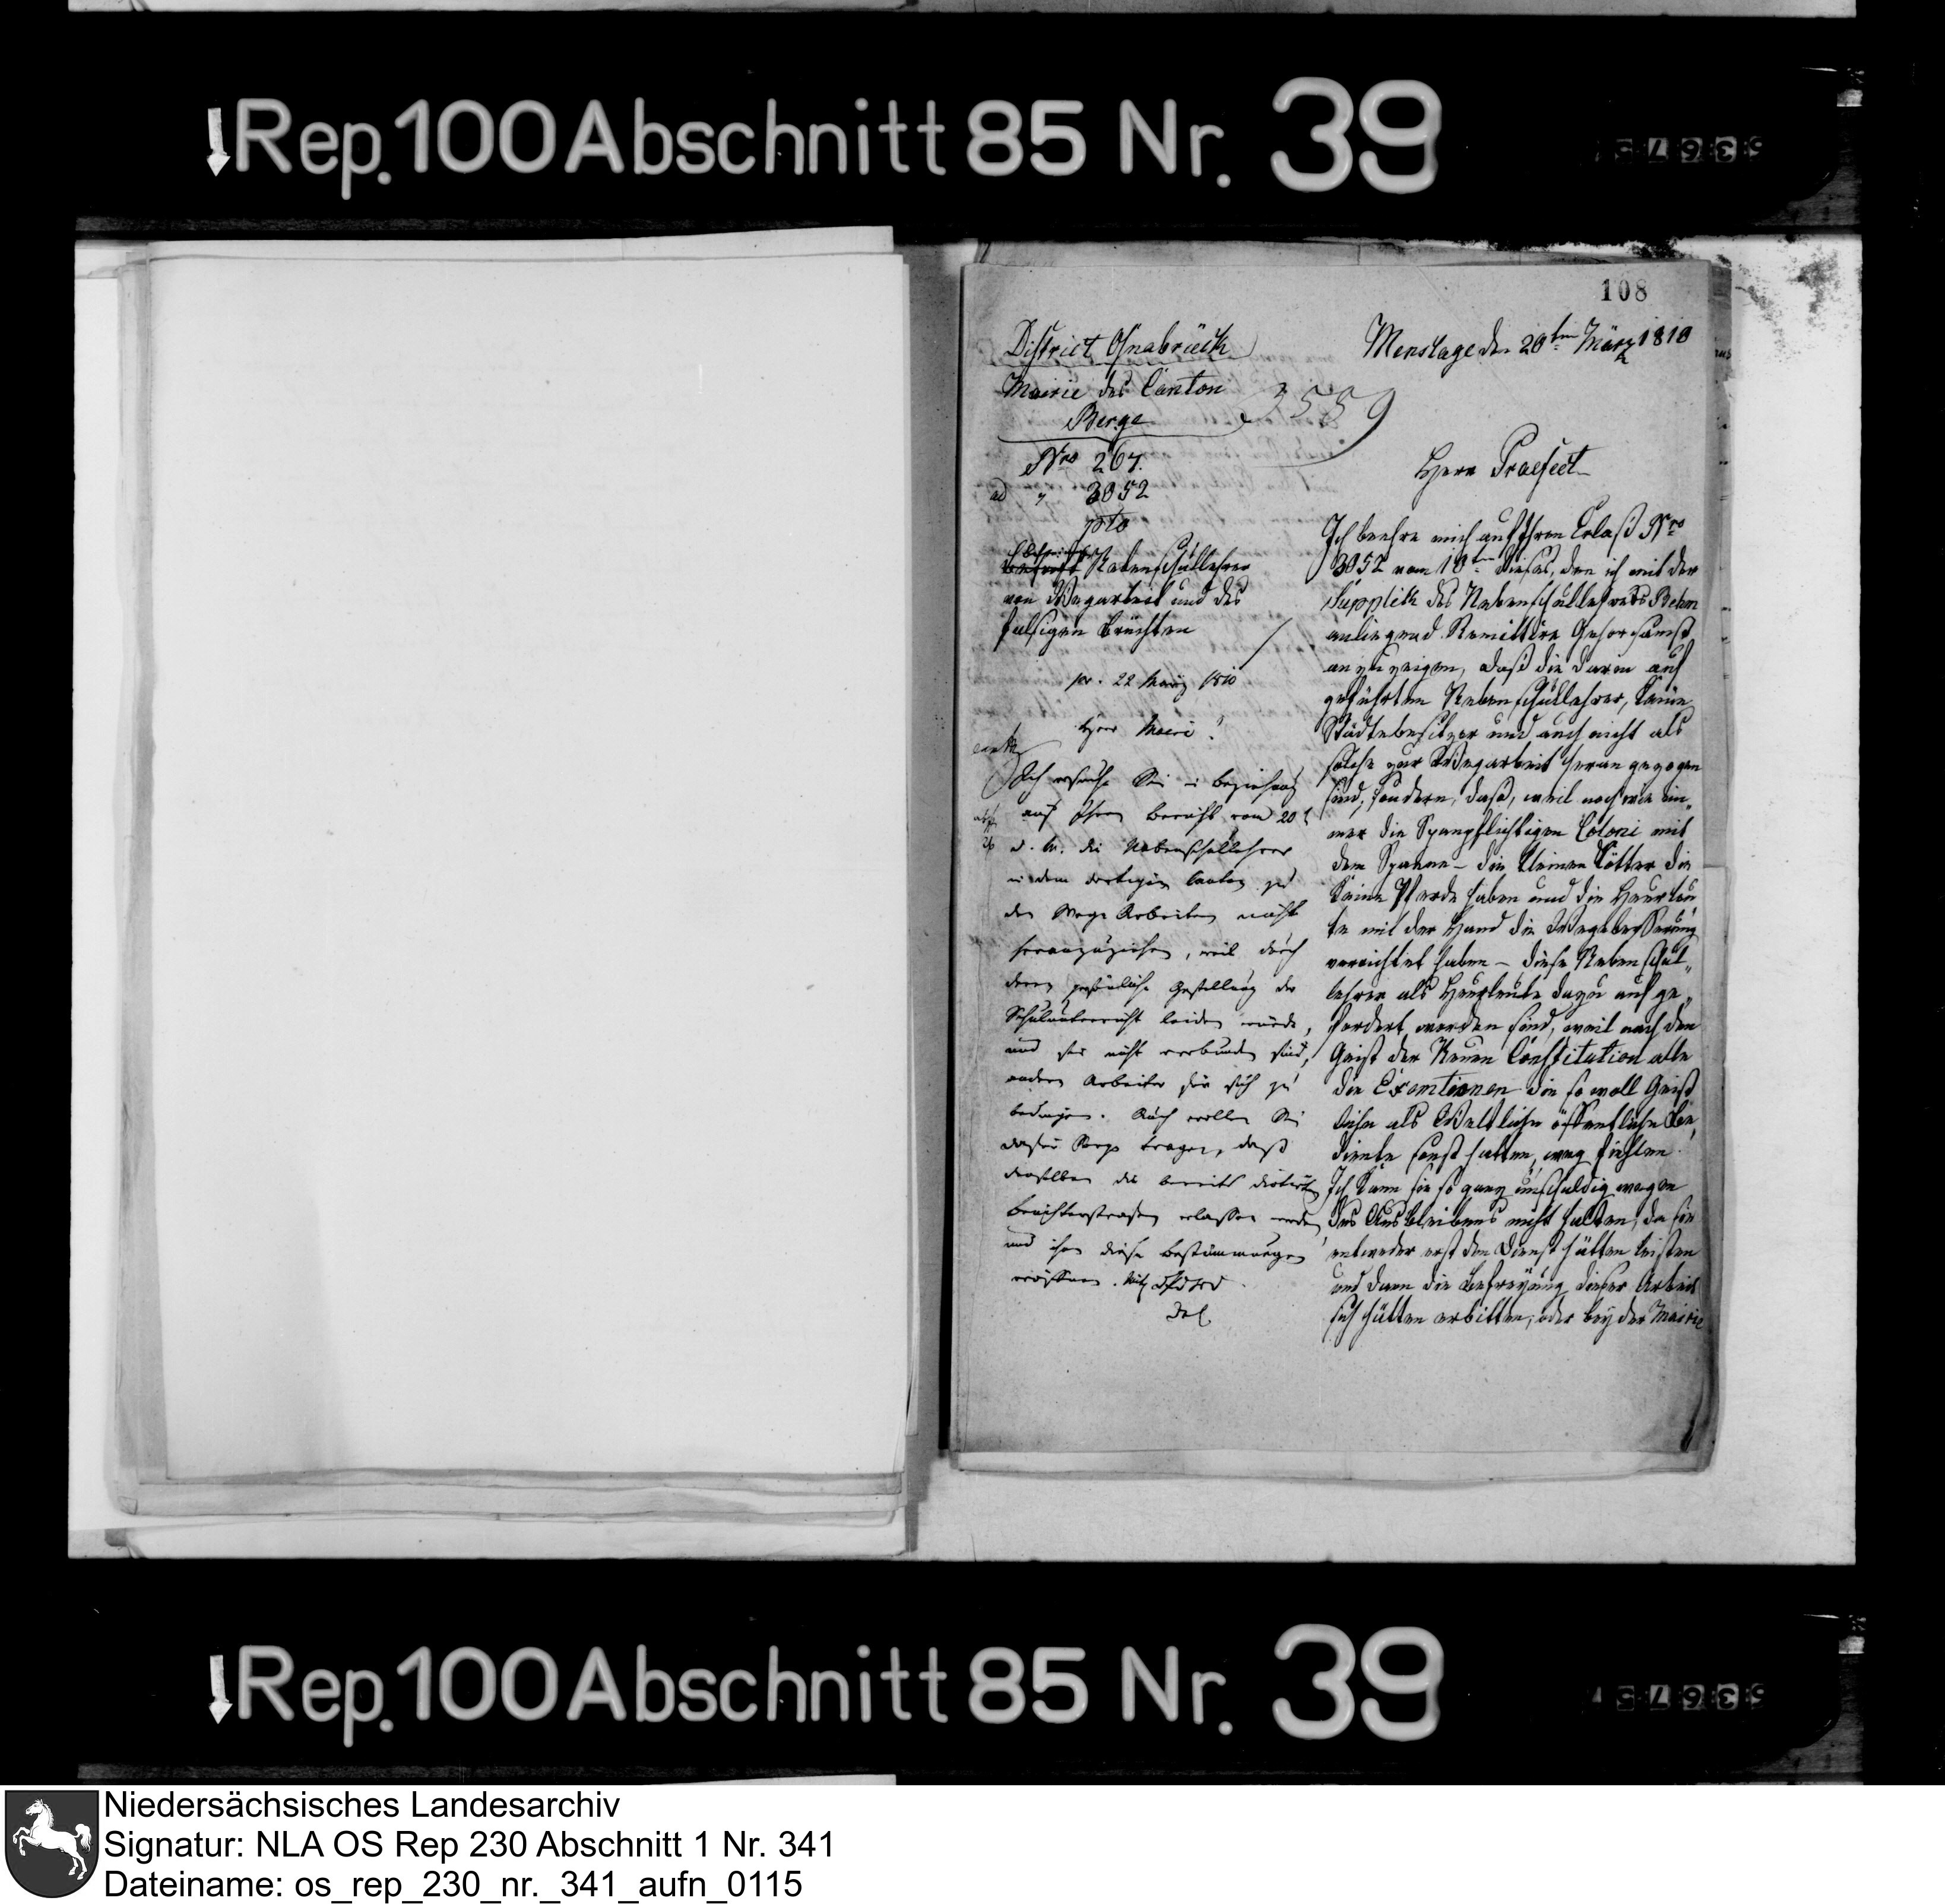 Rep. 100 Abschnitt 85 Nr. 39
108
District Osnabrück
Mairie des Canton
Berge
Nro 267.
ad " 3052
pto
Nebenschullehrer
von Wegarbeit und des
falsigen Brüchten
pr. 22 März 1810
Herr Maire!
Ich ersuche Sie in Beziehung
auf Ihren Bericht vom 20t
d. M. die Nebenschullehrer
in dem dortigen Canton zu
den Wege Arbeiten nicht
heranzuziehen, weil durch
deren persönliche Gestellung der
Schulunterricht leiden würde,
und sie nicht verbunden sind,
andere Arbeiter für sich zu
bedingen. Auch wollen Sie
dafür Sorge tragen, daß
denselben die bereits dictirten
Brüchtenstrafen erlassen werden
und ihnen diese Bestimmungen
eröffnen.
Menslage den 20ten März 1810
3559
Herr Praefect
Ich beehre mich auf Ihren Erlaß Nro
3052 vom 10ten dieses, den ich mit der
Supplik des Nebenschullehrers Behm
anliegend Remittire Gehorsamst
anzuzeigen, daß die darin auf
geführten Nebenschullehrer, keine
Stättebesitzer und auch nicht als
solche zur Wegarbeit heran gezogen
sind, sondern, daß, weil nach wie im„
mer die Spannpflichtigen Coloni mit
dem Spanne – die kleinen Kötter die
keine Pferde haben und die Heuerleu
te mit der Hand die Wegebesserung
verrichtet haben – diese Nebenschul„
lehrer als Heuerleute dazu auf ge„
fordert worden sind, weil nach den
Geist der Neuen Constitution alle
die Exemtionen die so woll Geist
liche als Weltliche öffentliche Be„
diente sonst hatten, weg fiehlen.
Ich kann sie so ganz unschuldig wegen
des Ausbleibens nicht halten, da sie
entweder erst den Dienst hätten leisten
und dann die Befreyung dieser Arbeit
sich hätten erbitten, oder bey der Mairie
Rep. 100 Abschnitt 85 Nr. 39
Niedersächsisches Landesarchiv
Signatur: NLA OS Rep 230 Abschnitt 1 Nr. 341
Dateiname: os_rep_230_nr._341_aufn_0115